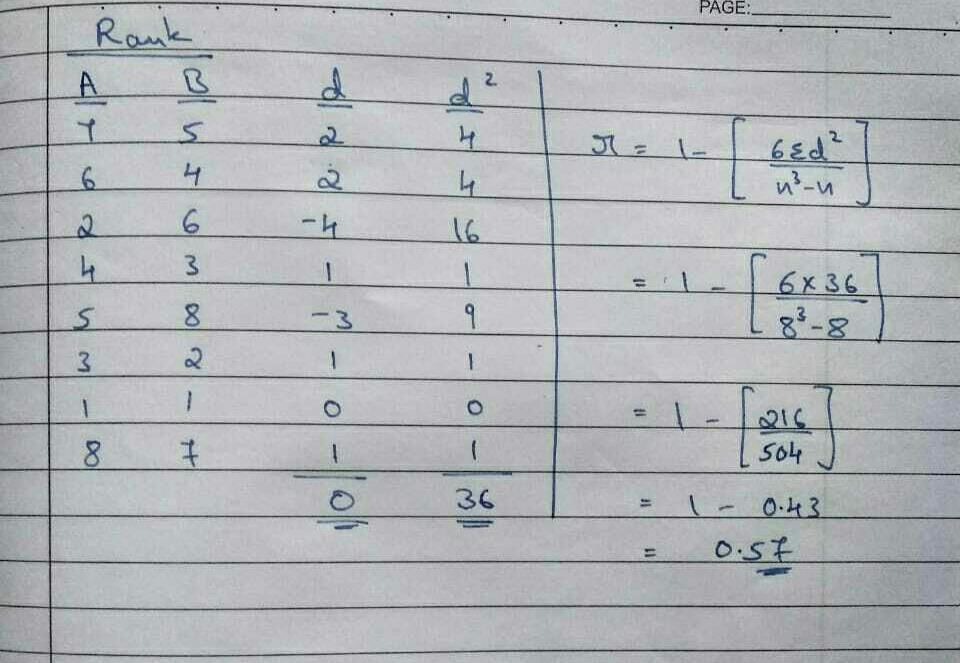 PAGE:
Rank
A B d d²
7 5 2 4
6 4 2 4
2 6 -4 16
4 3 1 1
5 8 -3 9
3 2 1 1
1 1 0 0
8 7 1 1
0 36
r = 1 - [6Σd² / n³-n]
= 1 - [6×36 / 8³-8]
= 1 - [216 / 504]
= 1 - 0.43
= 0.57